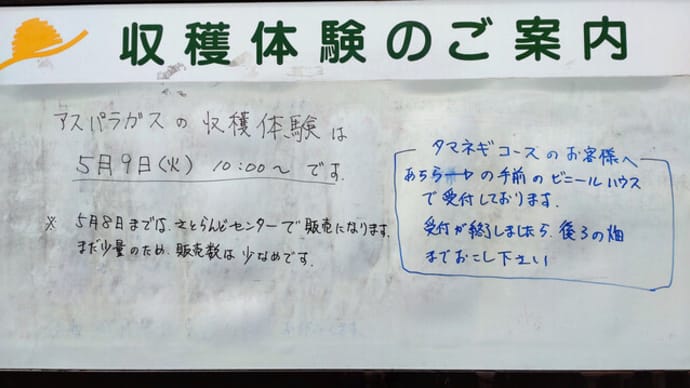 収穫体験のご案内
アスパラガスの収穫体験は
5月9日(火) 10:00～ です.
※ 5月8日までは、さとらんどセンターで販売になります.
まだ少量のため、販売数は少なめです.
タマネギコースのお客様へ
あちら の手前のビニールハウス
で受付しております.
受付が終了しましたら、後ろの畑
までおこし下さい